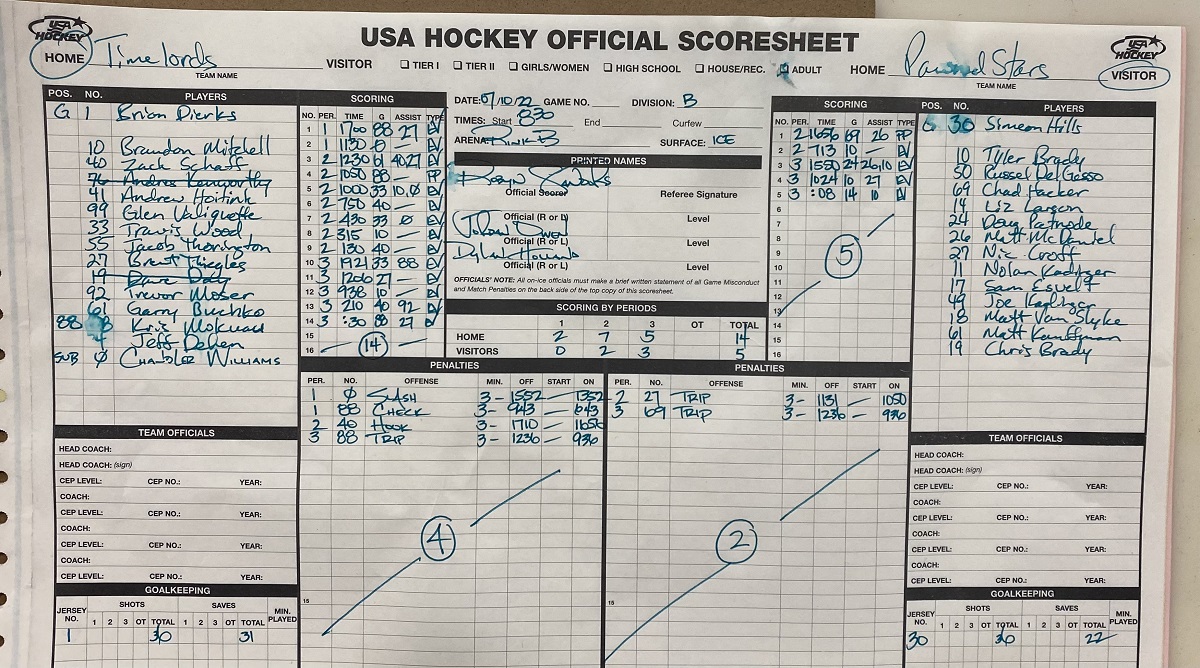 USA HOCKEY OFFICIAL SCORESHEET
USA HOCKEY
USA HOCKEY
HOME Timelords VISITOR
TEAM NAME
☐ TIER I ☐ TIER II ☐ GIRLS/WOMEN ☐ HIGH SCHOOL ☐ HOUSE/REC. ☑ ADULT
HOME Pawned Stars VISITOR
TEAM NAME
POS. NO. PLAYERS
G 1 Brian Dierks
10 Brandon Mitchell
40 Zack Schaff
76 Andres Kenworthy
41 Andrew Hoitink
99 Glen Valiquette
33 Travis Wood
55 Jacob Thorington
27 Brent Thiegles
19 Dave Day
92 Trevor Moser
61 Garry Buchko
88 Kris Mokuau
4 Jeff Dehen
SUB Ø CHANDLER WILLIAMS
SCORING
NO. PER. TIME G ASSIST TYPE
1 1 1700 88 27 EV
2 1 1130 Ø — EV
3 2 1230 61 40,27 EV
4 2 1050 88 — PP
5 2 1000 33 10,Ø EV
6 2 750 40 — EV
7 2 430 33 Ø EV
8 2 315 10 — EV
9 2 130 40 — EV
10 3 1921 33 88 EV
11 3 1206 27 — EV
12 3 938 10 — EV
13 3 210 40 92 EV
14 3 :30 88 27 EV
15 14
16
DATE: 07/10/22 GAME NO. DIVISION: B
TIMES: Start 830 End Curfew
ARENA: RINK B SURFACE: ICE
PRINTED NAMES
Official Scorer Referee Signature
Official (R or L) Level
Official (R or L) Level
Official (R or L) Level
OFFICIALS' NOTE: All on-ice officials must make a brief written statement of all Game Misconduct
and Match Penalties on the back side of the top copy of this scoresheet.
SCORING BY PERIODS
1 2 3 OT TOTAL
HOME 2 7 5 14
VISITORS 0 2 3 5
SCORING
NO. PER. TIME G ASSIST TYPE
1 2 1656 69 26 PP
2 2 713 10 — EV
3 3 1550 24 26,10 EV
4 3 1024 10 27 EV
5 3 :08 14 10 EV
6
7
8
9
10 5
11
12
13
14
15
16
POS. NO. PLAYERS
G 30 Simeon Hills
10 Tyler Brady
50 Russel DelGosso
69 Chad Hacker
14 Liz Larson
24 Doug Patnode
26 Matt McDaniel
27 Nic Croff
11 Nolan Kadinger
17 Sam Esvelt
49 Joe Keplinger
18 Matt Van Slyke
61 Matt Kauffman
19 Chris Brady
PENALTIES
PER. NO. OFFENSE MIN. OFF START ON
1 Ø SLASH 3 – 1552 — 1352
1 88 CHECK 3 – 943 — 643
2 40 HOOK 3 – 1710 — 1656
3 88 TRIP 3 – 1236 — 936
4
15
PENALTIES
PER. NO. OFFENSE MIN. OFF START ON
2 27 TRIP 3 – 1131 — 1050
3 69 TRIP 3 – 1236 — 936
2
15
TEAM OFFICIALS
HEAD COACH:
HEAD COACH: (sign)
CEP LEVEL: CEP NO.: YEAR:
COACH:
CEP LEVEL: CEP NO.: YEAR:
COACH:
CEP LEVEL: CEP NO.: YEAR:
COACH:
CEP LEVEL: CEP NO.: YEAR:
GOALKEEPING
JERSEY NO. SHOTS 1 2 3 OT TOTAL SAVES 1 2 3 OT TOTAL MIN. PLAYED
1 36 31
TEAM OFFICIALS
HEAD COACH:
HEAD COACH: (sign)
CEP LEVEL: CEP NO.: YEAR:
COACH:
CEP LEVEL: CEP NO.: YEAR:
COACH:
CEP LEVEL: CEP NO.: YEAR:
COACH:
CEP LEVEL: CEP NO.: YEAR:
GOALKEEPING
JERSEY NO. SHOTS 1 2 3 OT TOTAL SAVES 1 2 3 OT TOTAL MIN. PLAYED
30 36 22